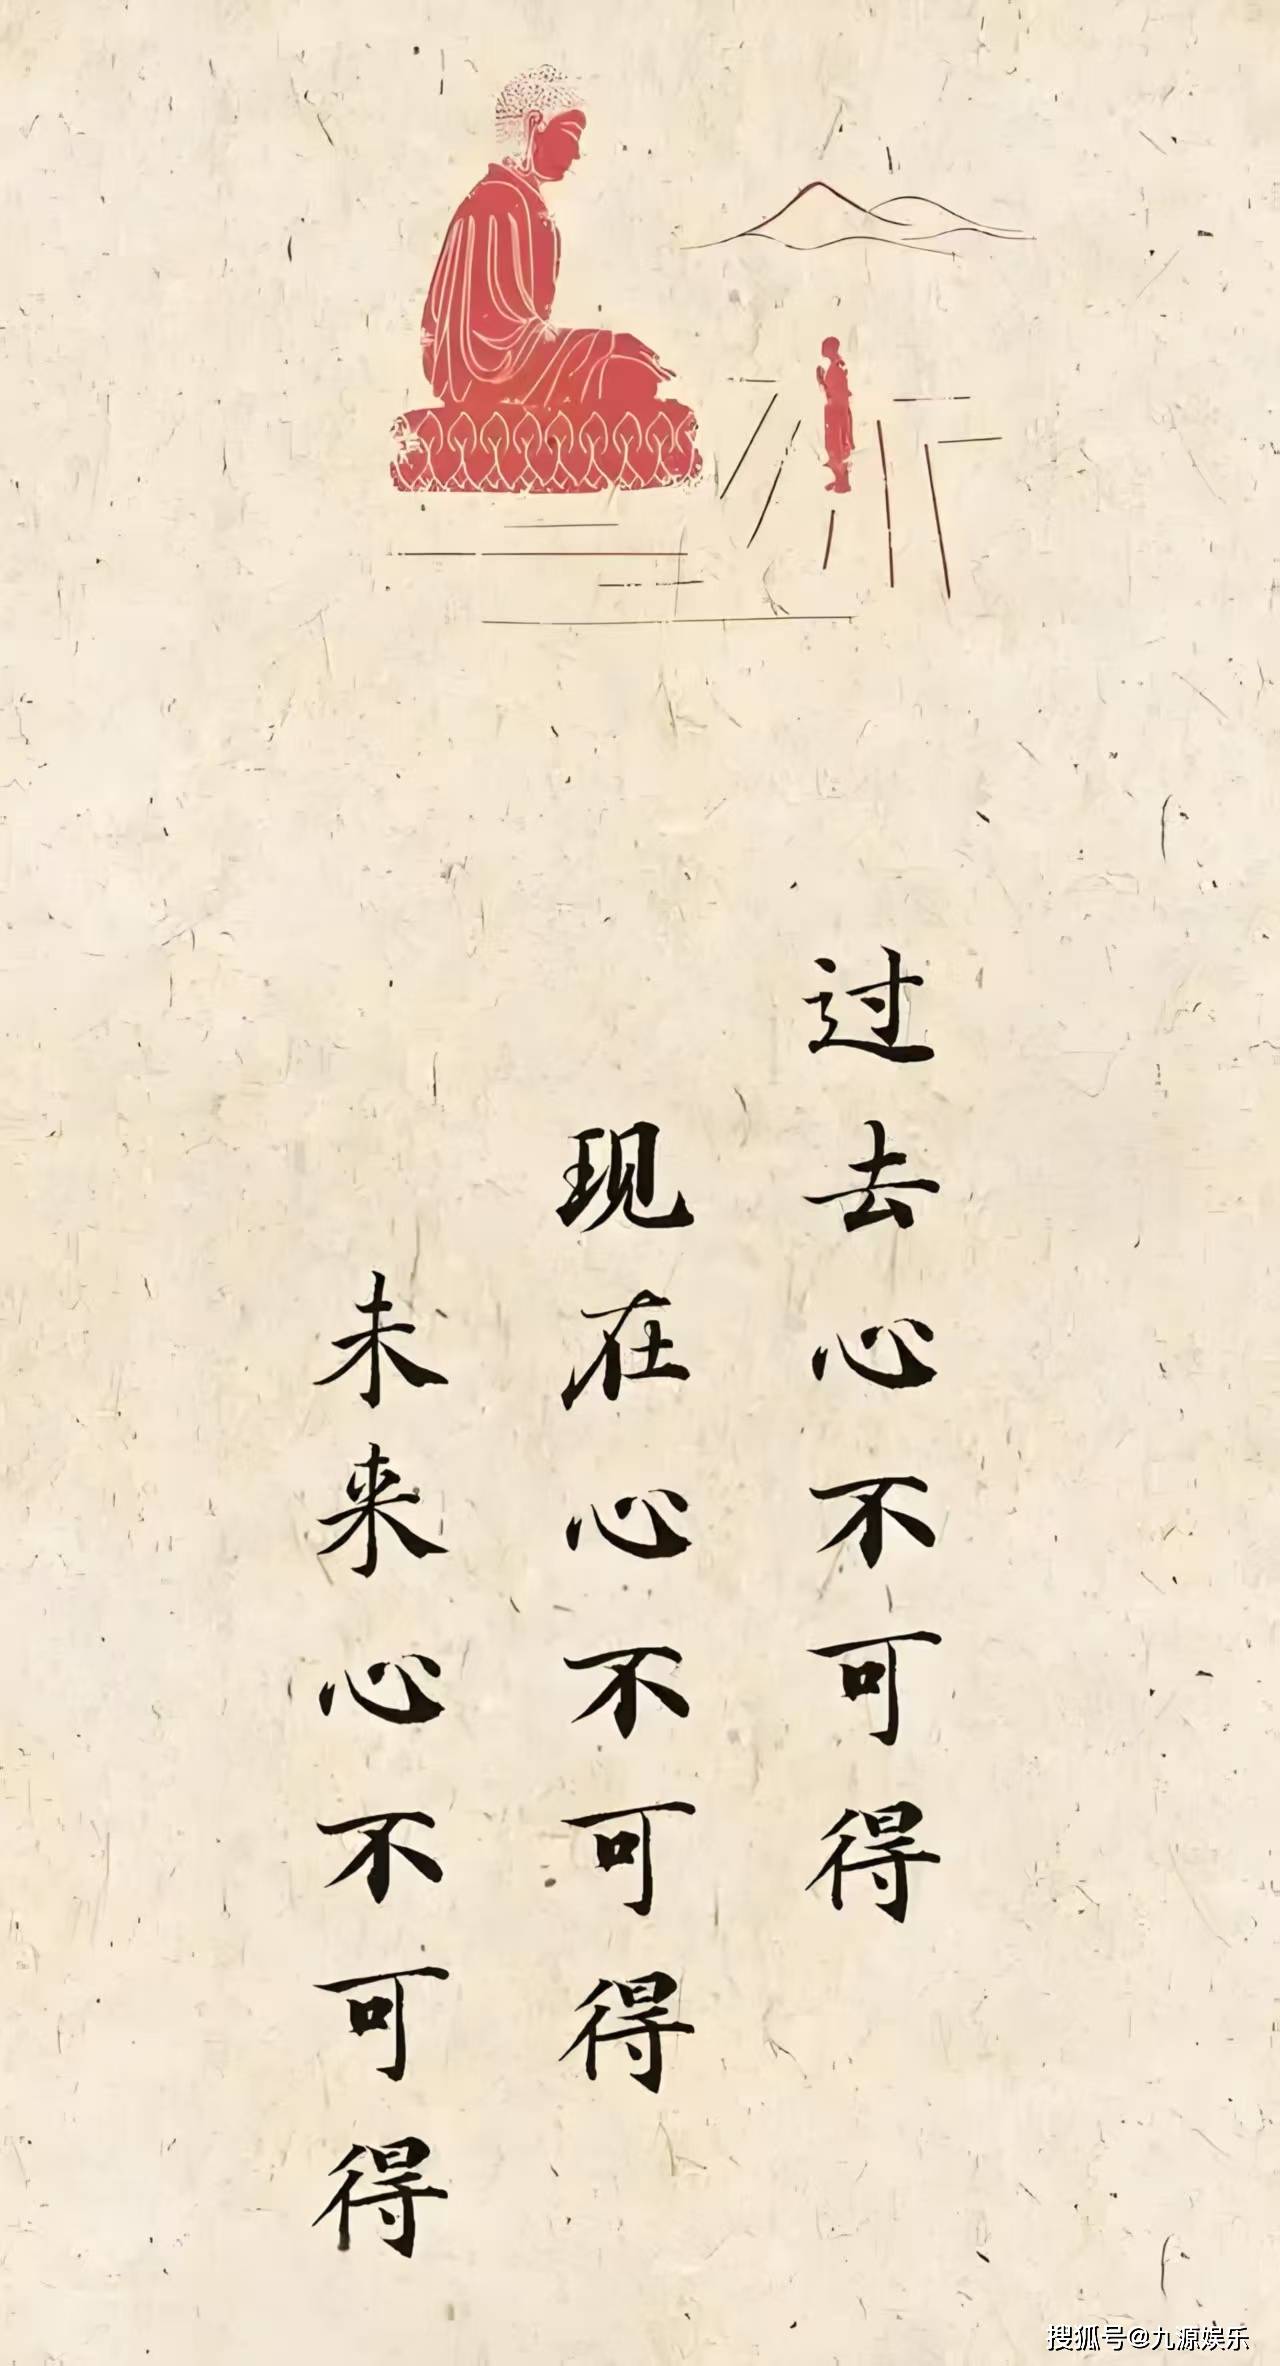 过去心不可得
现在心不可得
未来心不可得
搜狐号@九源娱乐